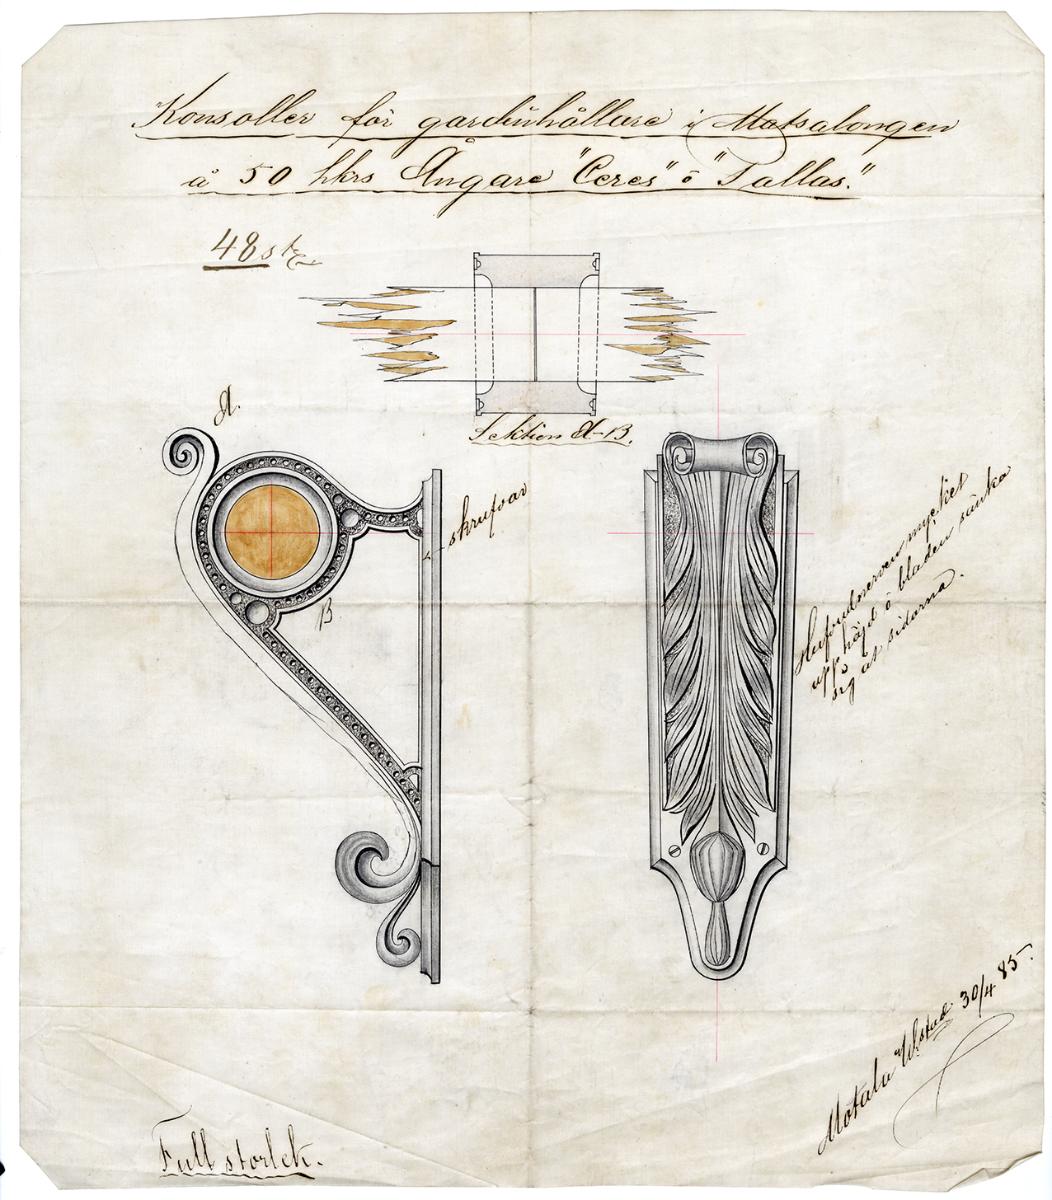 Konsoller för gardinhållare i Matsalongen
å 50 hkrs Ångare "Ceres" o "Pallas."
48 st
Sektion A-B.
A.
2 skrufvar
B.
Hufvudnerven mycket
upphöjd o bladen sänka
sig åt sidorna.
Motala Wstad 30/4 85
Full storlek.